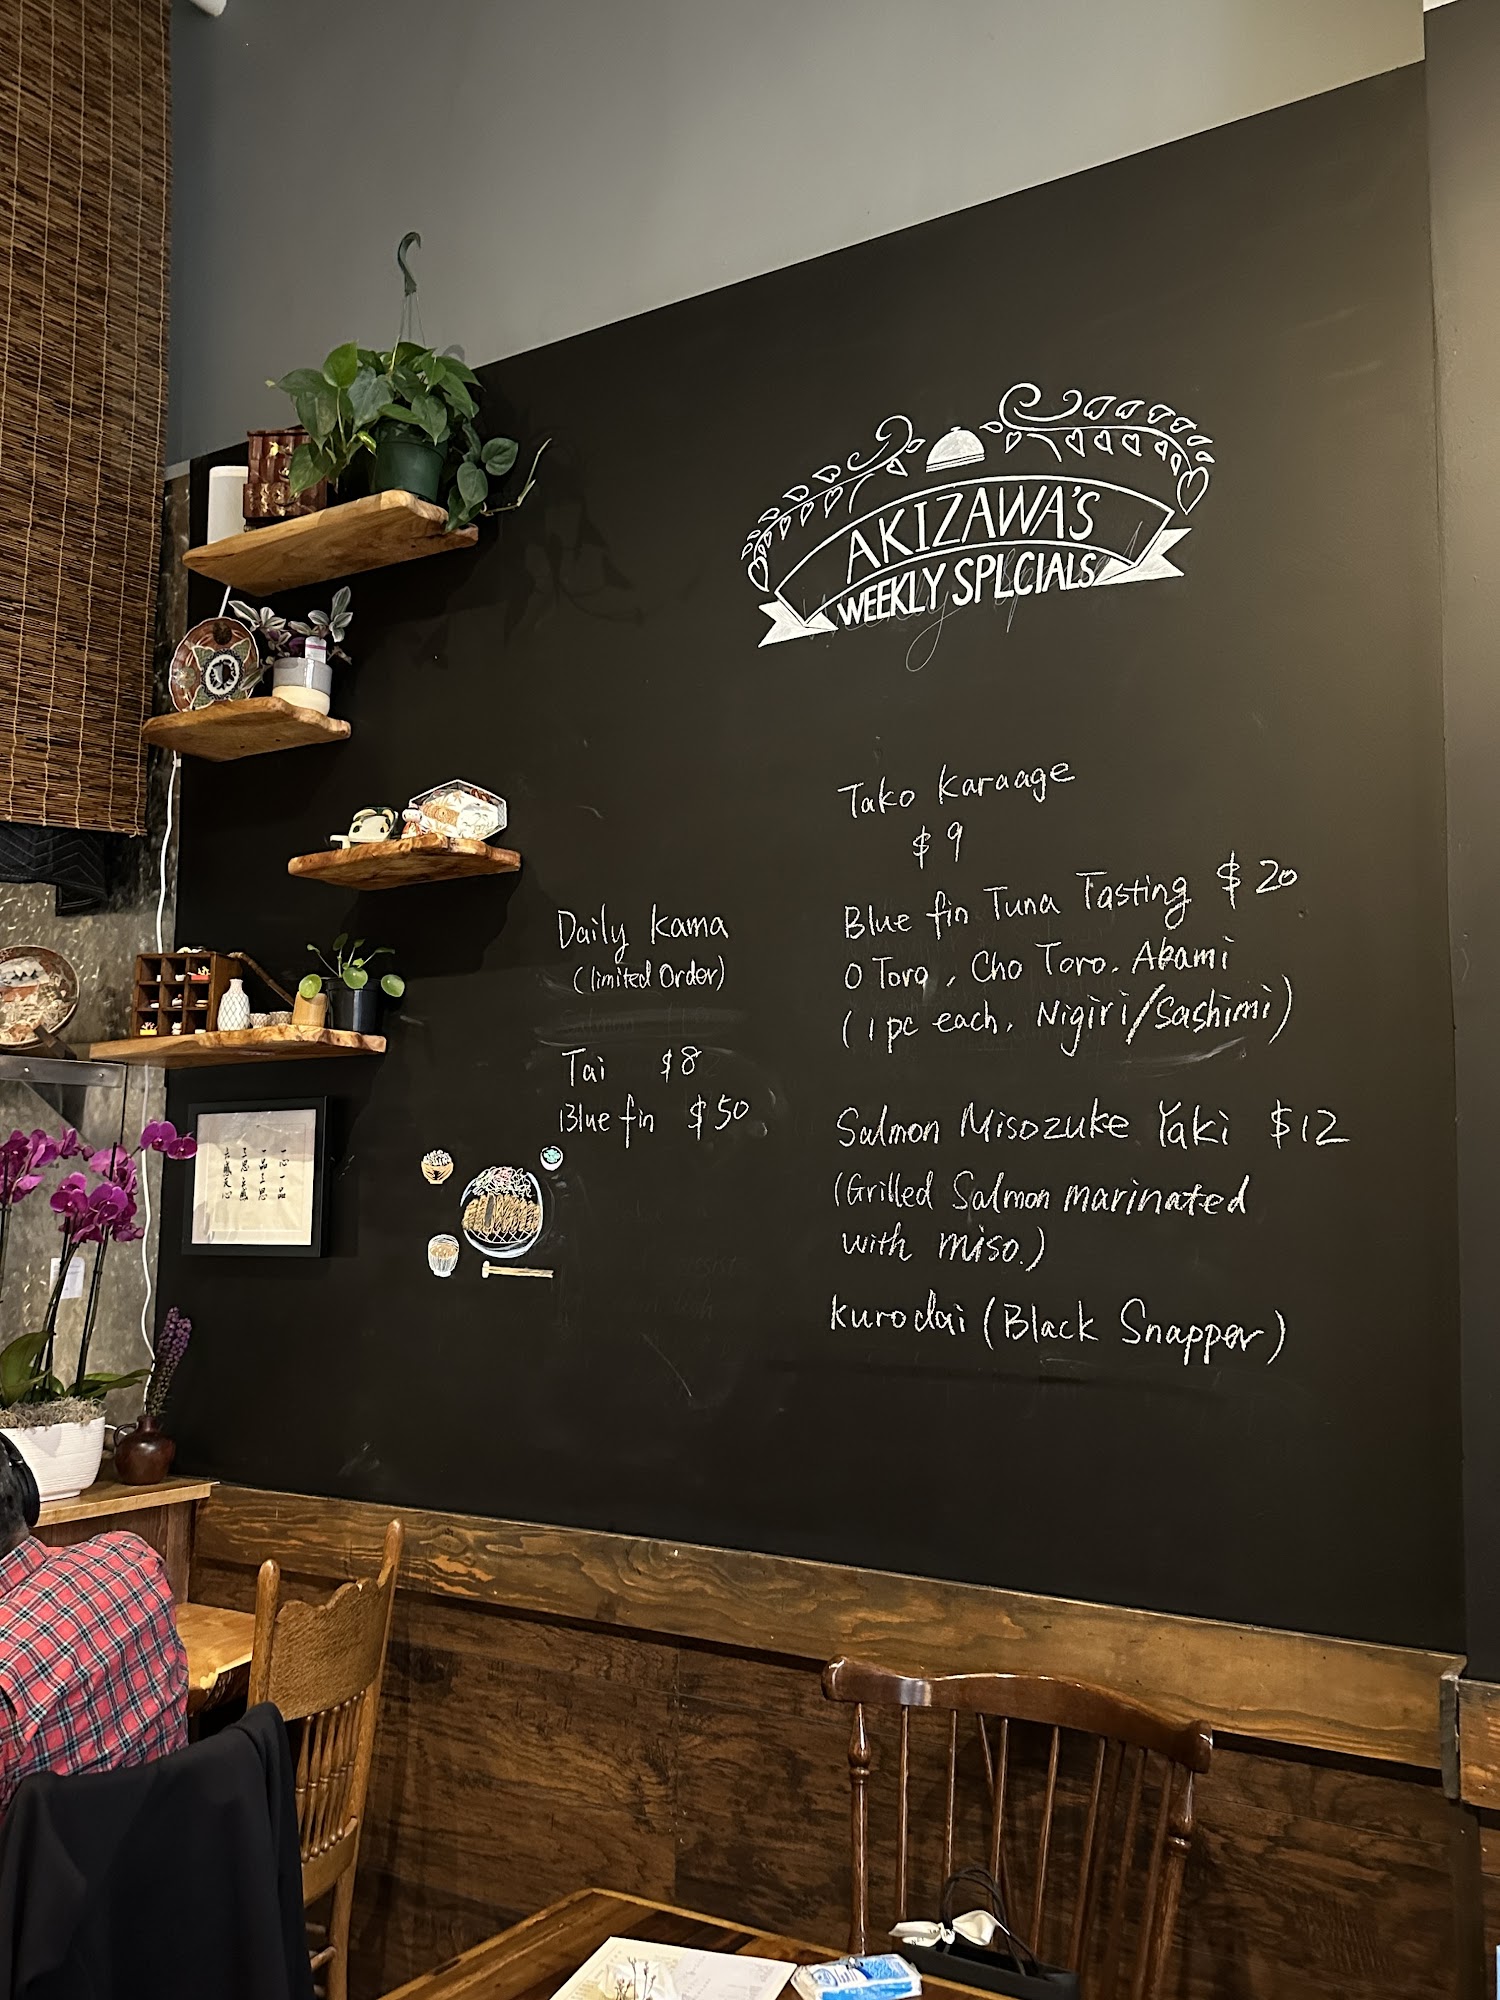 AKIZAWA'S
WEEKLY SPECIALS
Tako Karaage
$9
Blue fin Tuna Tasting $20
O Toro, Cho Toro. Akami
(1 pc each, Nigiri/Sashimi)
Salmon Misozuke Yaki $12
(Grilled Salmon marinated
with miso.)
kurodai (Black Snapper)
Daily Kama
(limited Order)
Tai $8
Blue fin $50